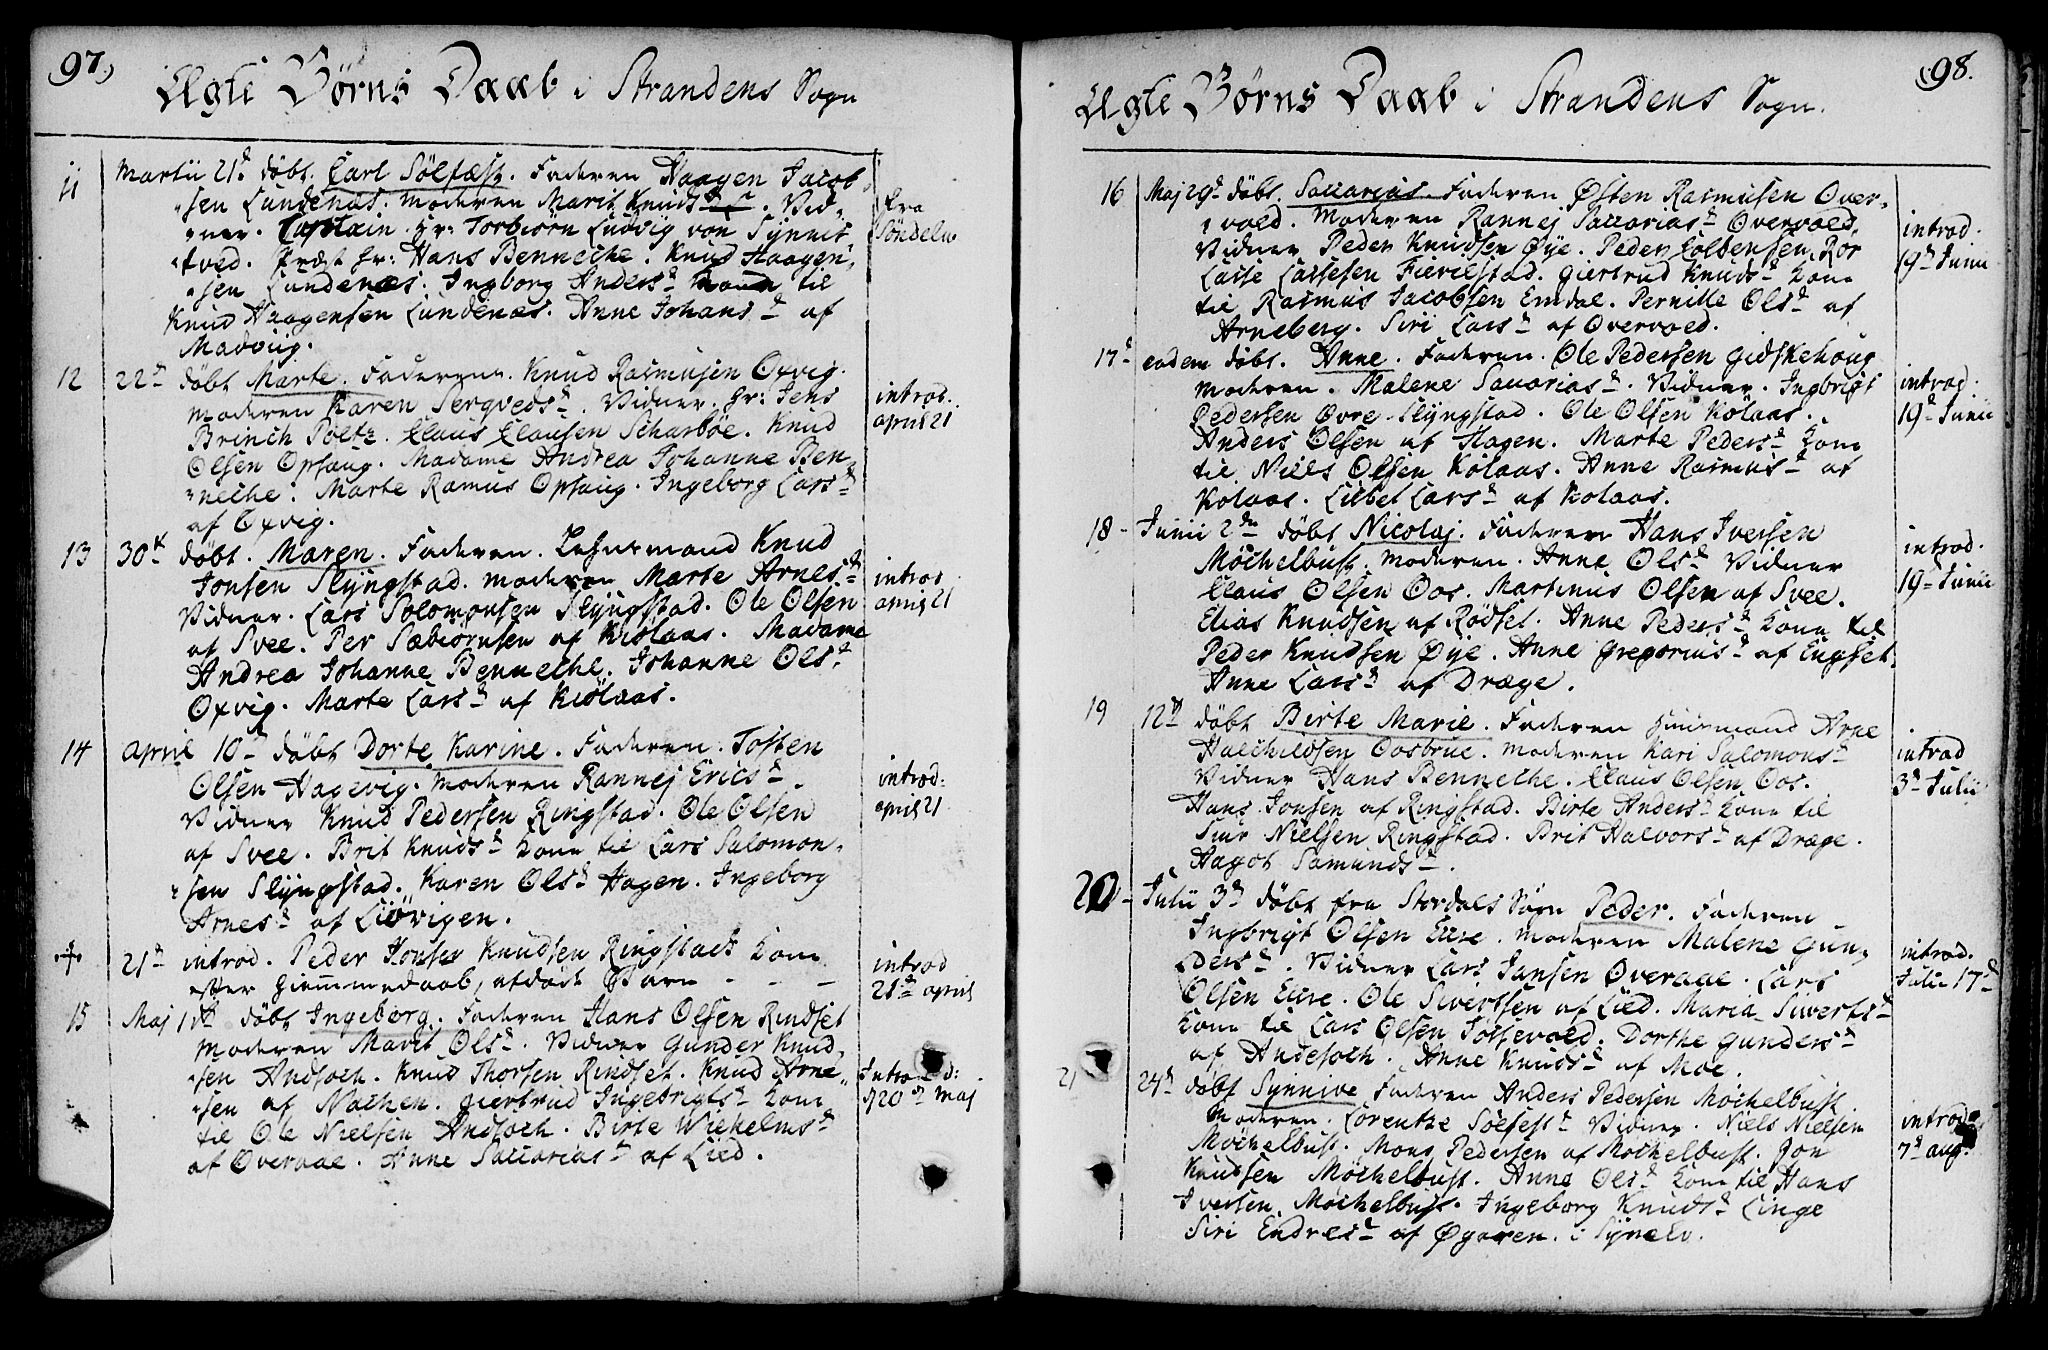 97.
Ægte Börns Daab i Strandens Sogn
11 Martii 21d döbt. Carl Sölfæst. Faderen Haagen Jacob-
sen Lundenæs. Moderen Marit Knudsd. Vid-
ner. Captain Hr: Torbiörn Ludvig von Synnest-
tved. Præst Hr: Hans Benneche. Knud Haagen-
sen Lundenæs. Ingborg Andersd Kone til
Knud Haagensen Lundenæs. Anne Johansd af
Madvig.
fra
Söndelv
12 22d döbt Marte. Faderen. Knud Rasmusen Oxvig.
Moderen Karen Sergvedsd. Vidner. Hr: Jens
Brinch Poltz. Claus Clausen Scharböe. Knud
Olsen Opsaug. Madame Andrea Johanne Ben-
neche. Marte Ramus Opsaug. Ingeborg Larsd
af Oxvig.
introd.
april 21
13 30te döbt. Maren. Faderen. Lehnsmand Knud
Jonsen Slyngstad. Moderen Marte Arnesd
Vidner. Lars Solomonsen Slyngstad. Ole Olsen
af Svee. Per Sæbiörnsen af Kiölaas. Madame
Andrea Johanne Benneche. Johanne Olsd
Oxvig. Marte Larsd af Kiölaas.
introd
april 21
14 april 10d döbt Dorte Karine. Faderen. Tosten
Olsen Hagevig. Moderen Rannej Ericsd
Vidner Knud Pedersen Ringstad. Ole Olsen
af Svee. Brit Knudsd Kone til Lars Salomon-
sen Slyngstad. Karen Olsd Hagen. Ingeborg
Arnesd af Liövigen.
introd:
april 21
21d introd. Peder Knudsen Ringstads Kone
efter Hiemmedaab, afdöde Barn - - -
introd
21d april
15 Maj 1te döbt Ingeborg. Faderen Hans Olsen Rindset
Moderen Marit Olsd. Vidner Gunder Knud-
sen Andsoch. Knud Thorsen Rindset. Knud Arne-
sen af Nochen. Giertrud Ingebrigtsd Kone
til Ole Nielsen Andsoch. Birte Wichelmsd
af Overaae. Anne Saccariasd af Lied.
Introd:
20d Maj
98.
Ægte Börns Daab i Strandens Sogn.
16 Maj 29d döbt. Saccarias. Faderen Østen Rasmusen Over-
voed. Moderen Rannej Saccariasd Overvoed.
Vidner Peder Knudsen Øye. Peder Colbensen Ror
Lasse Lassesen Fievelstad. Giertrud Knudsd Kone
til Rasmus Jacobsen Emdal. Pernille Olsd af
Arneberg. Siri Larsd af Overvoed.
introd.
19d Junii
17d eadem döbt. Anne. Faderen. Ole Pedersen Gidskehoug
Moderen. Malene Saccariasd. Vidner. Ingbrigt
Pedersen Øvre Slyngstad. Ole Olsen Kölaas.
Anders Olsen af Hagen. Marte Pedersd Kone
til Niels Olsen Kolaas. Anne Rasmusd af
Kolaas. Lisbet Larsd af Kolaas.
introd.
19d Junii
18 - Junii 2den döbt Nicolaj. Faderen Hans Iversen
Möchelbust. Moderen. Anne Olsd Vidner
Claus Olsen Oos. Martinus Olsen af Svee.
Elias Knudsen af Rödset. Anne Pedersd Kone til
Peder Knudsen Øye. Anne Gregoriusd af Engset.
Anne Larsd af Dræge.
introd.
19d Junii
19 12d döbt Birte Marie. Faderen Huusmand Arne
Halchildsen Oosbrue. Moderen Kari Salomonsd
Vidner Hans Benneche. Claus Olsen Oos.
Hans Jonsen af Ringstad. Birte Andersd Kone til
Siur Nielsen Ringstad. Brit Halvorsd af Dræge.
Hagot Samundsd.
introd
3d Julii
20 - Julii 3d döbt fra Stordals Sogn Peder. Faderen
Ingbrigt Olsen Euse. Moderen Malene Gun-
dersd. Vidner Lars Jansen Overaae. Lars
Olsen Euse. Ole Siverssen af Lied. Maria Sivertsd
Kone til Lars Olsen Tossevoed. Dorthe Gundersd
af Andesoch. Anne Knudsd af Moe.
introd.
Julii 17d
21 24d döbt Synnive Faderen Anders Pedersen Möchelbust
Moderen. Lorentze Solfestd Vidner. Niels Nielsen
Möchelbust. Mons Pedersen af Möchelbust. Jon
Knudsen Möchelbust. Anne Olsd Kone til Hans
Iversen Möchelbust. Ingeborg Knudsd Linge
Siri Endresd af Øgaren i Sÿnelv.
introd
7d aug.